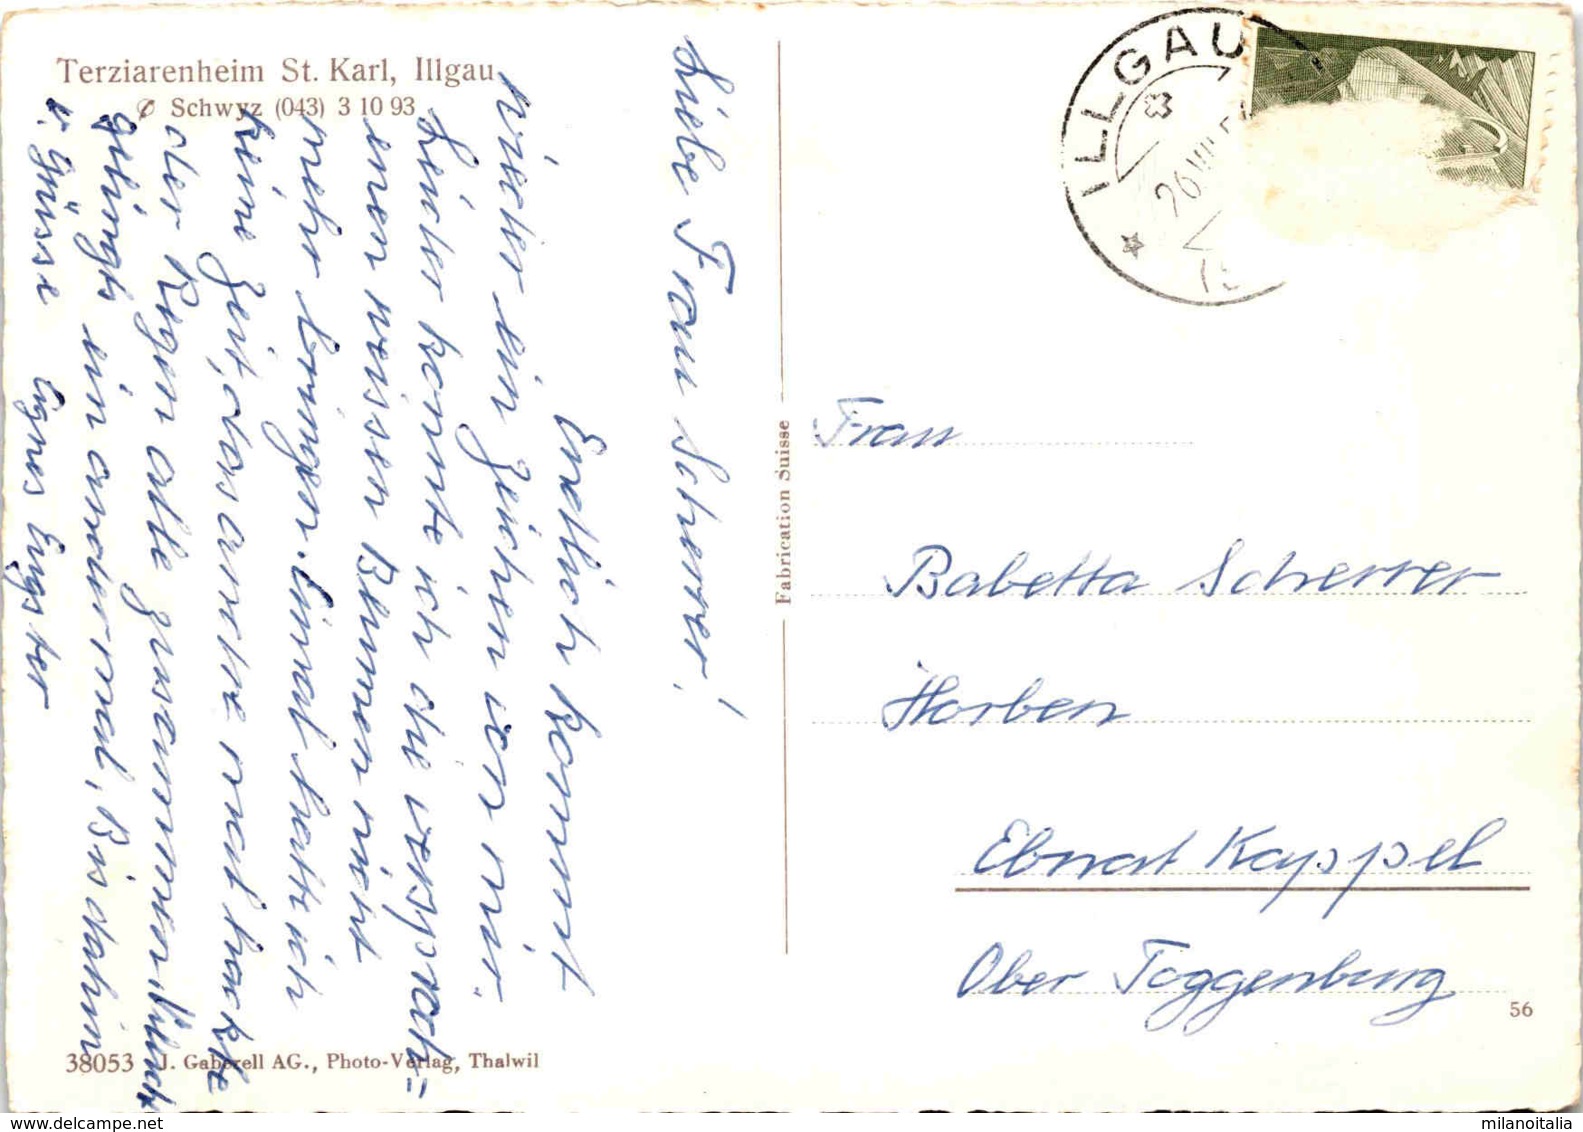 Terziarenheim St. Karl, Illgau
✆ Schwyz (043) 3 10 93
Liebe Frau Scherrer!
Endlich kommt
wieder ein Zeichen von mir.
Leider konnte ich die versproch=
enen weissen Blumen nicht
mehr bringen. Einmal hatte ich
keine Zeit, das andre mal hackte
der Regen alle zusammen. Vielleicht
gelingts ein andermal. Bis dahin
v. Grüsse Agnes Engster
38053 J. Gaberell AG., Photo-Verlag, Thalwil
Fabrication Suisse
ILLGAU
26 VIII 5
Frau
Babetta Scherrer
Horben
Ebnat Kappel
Ober Toggenburg
56
milanoitalia